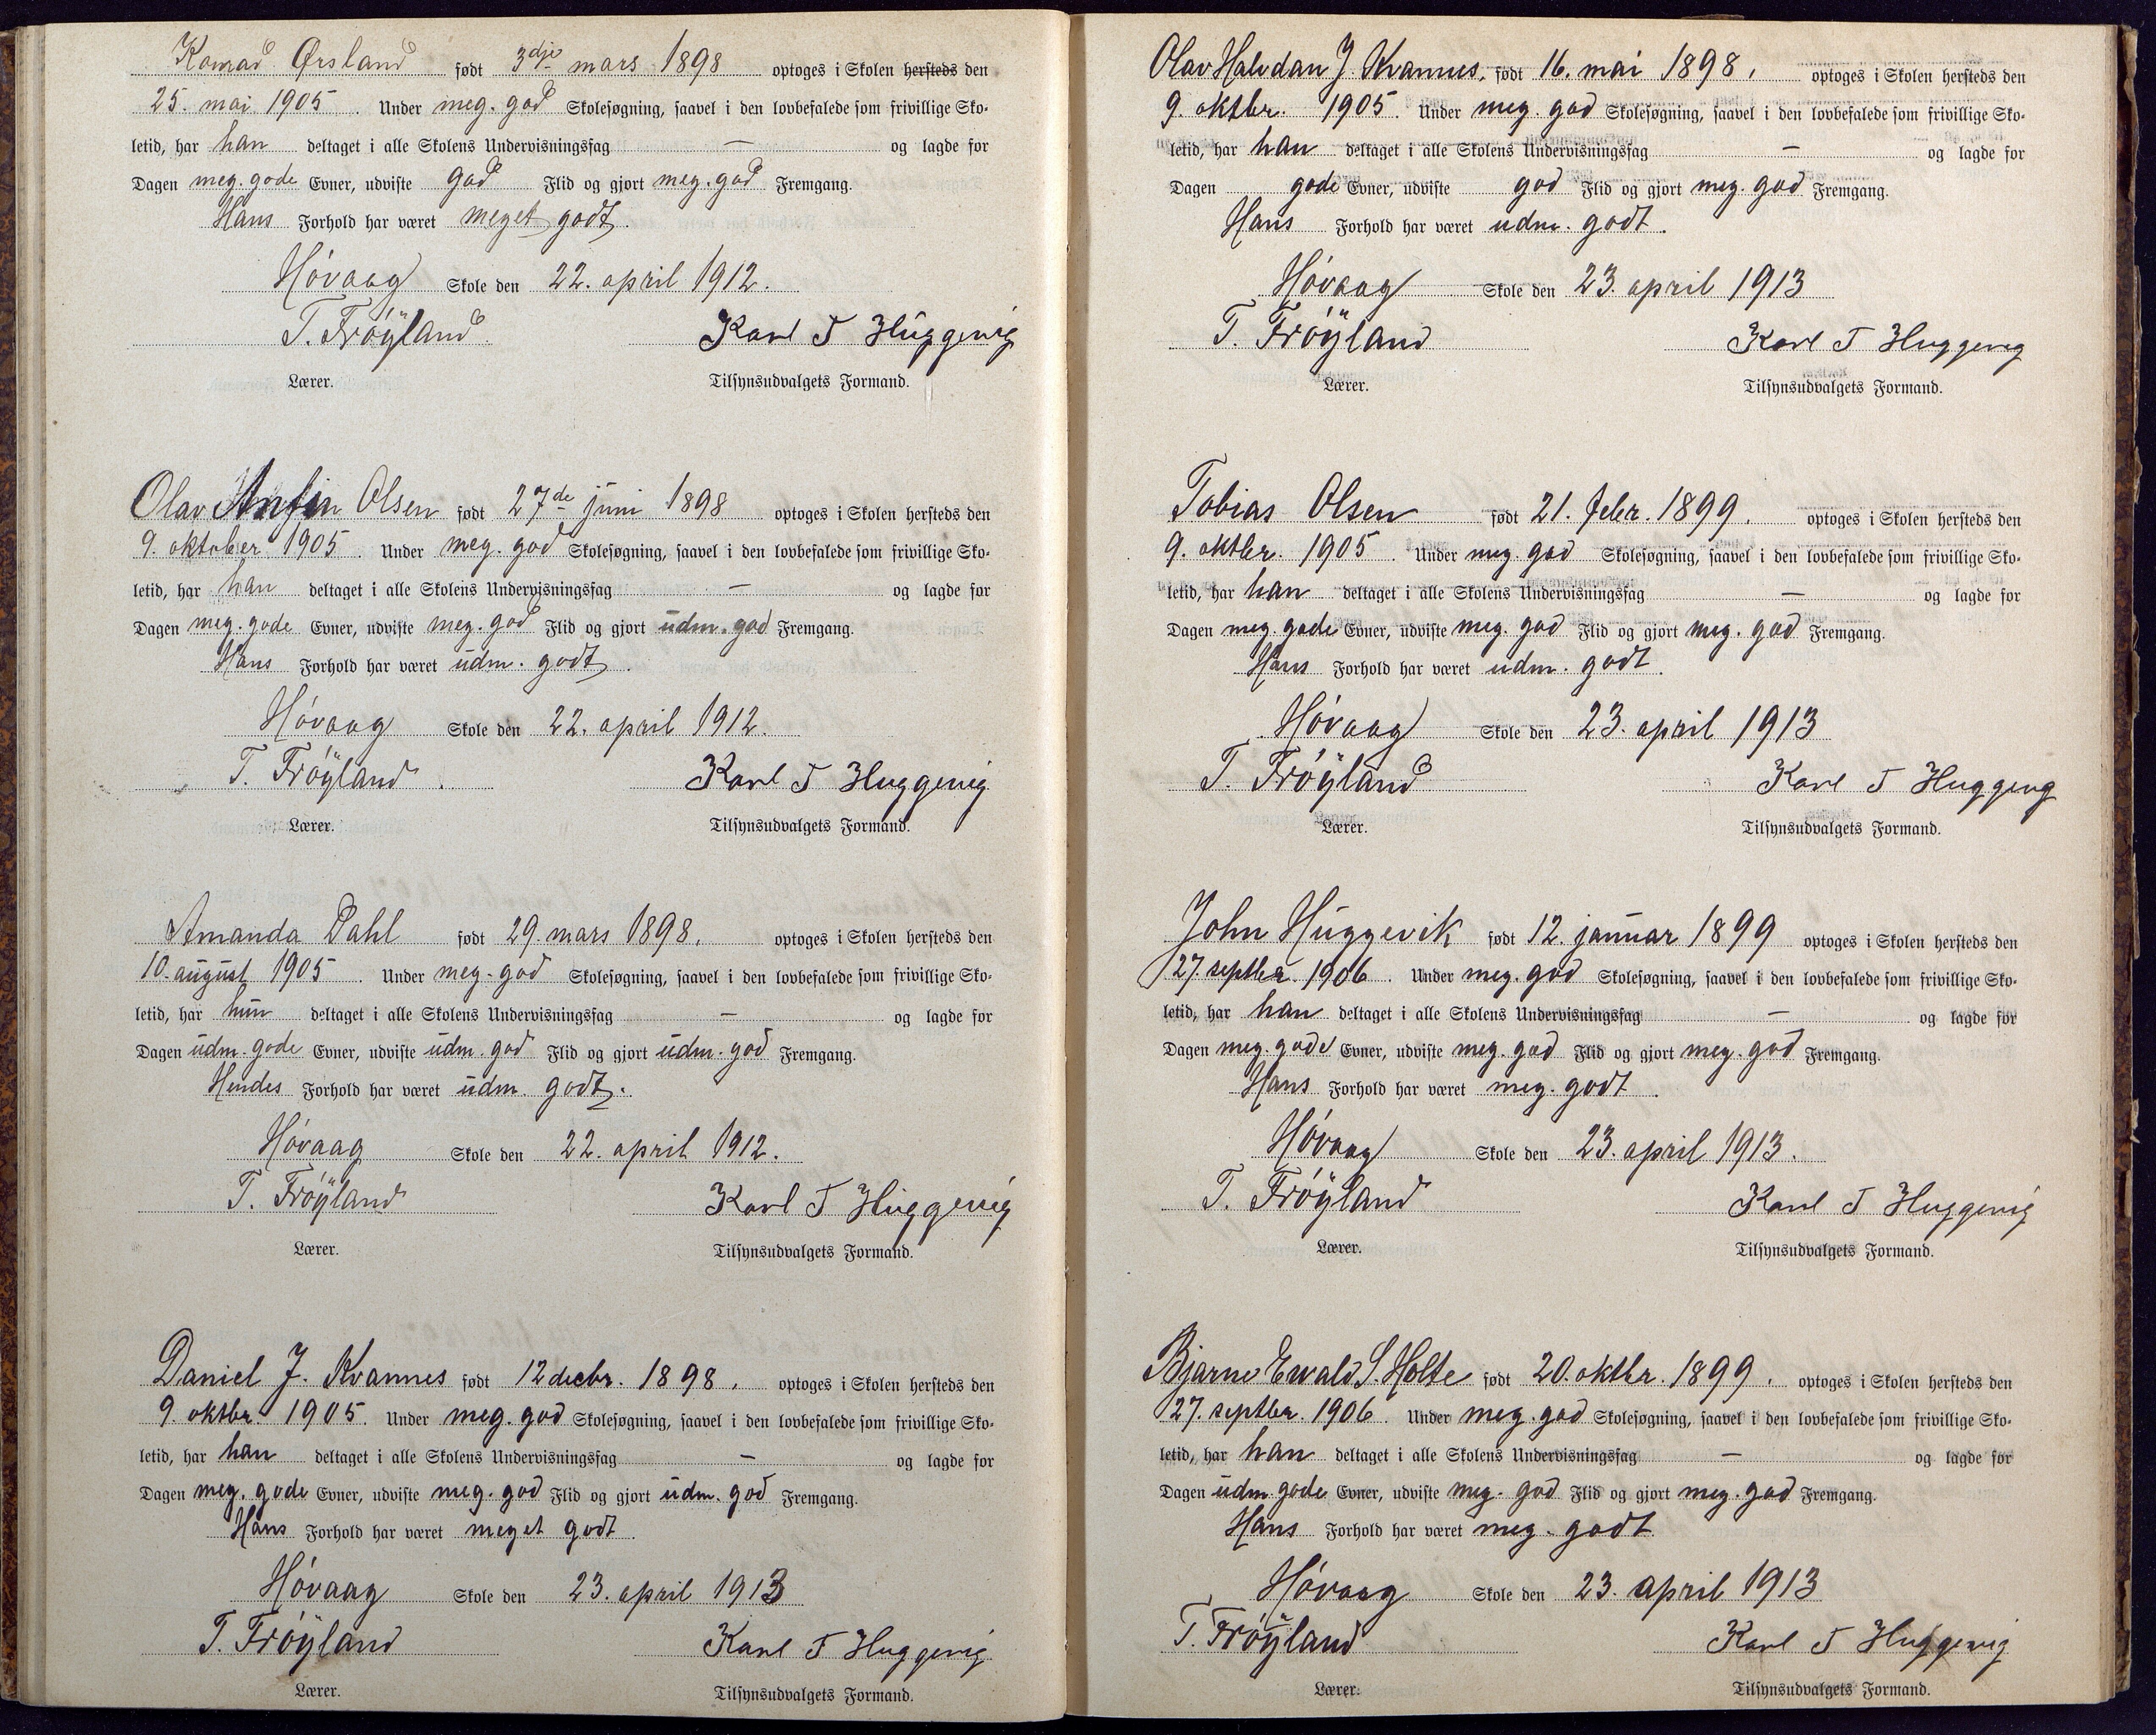 Konrad Ørsland født 3dje mars 1898 optoges i Skolen hersteds den
25. mai 1905. Under meg. god Skolesøgning, saavel i den lovbefalede som frivillige Sko-
letid, har han deltaget i alle Skolens Undervisningsfag — og lagde for
Dagen meg. gode Evner, udviste god Flid og gjort meg. god Fremgang.
Hans Forhold har været meget godt.
Høvaag Skole den 22. april 1912.
T. Frøyland. Karl T Huggevig
Lærer. Tilsynsudvalgets Formand.
Olav Anfin Olsen født 27de juni 1898 optoges i Skolen hersteds den
9. oktober 1905. Under meg. god Skolesøgning, saavel i den lovbefalede som frivillige Sko-
letid, har han deltaget i alle Skolens Undervisningsfag — og lagde for
Dagen meg. gode Evner, udviste meg. god Flid og gjort udm. god Fremgang.
Hans Forhold har været udm. godt.
Høvaag Skole den 22. april 1912.
T. Frøyland. Karl T Huggevig
Lærer. Tilsynsudvalgets Formand.
Amanda Dahl født 29. mars 1898. optoges i Skolen hersteds den
10. august 1905. Under meg. god Skolesøgning, saavel i den lovbefalede som frivillige Sko-
letid, har hun deltaget i alle Skolens Undervisningsfag — og lagde for
Dagen udm. gode Evner, udviste udm. god Flid og gjort udm. god Fremgang.
Hendes Forhold har været udm. godt.
Høvaag Skole den 22. april 1912.
T. Frøyland Karl T Huggevig
Lærer. Tilsynsudvalgets Formand.
Daniel J. Kvannes født 12 decbr. 1898. optoges i Skolen hersteds den
9. oktbr. 1905. Under meg. god Skolesøgning, saavel i den lovbefalede som frivillige Sko-
letid, har han deltaget i alle Skolens Undervisningsfag — og lagde for
Dagen meg. gode Evner, udviste meg. god Flid og gjort udm. god Fremgang.
Hans Forhold har været meget godt.
Høvaag Skole den 23. april 1913
T. Frøyland Karl T Huggevig
Lærer. Tilsynsudvalgets Formand.
Olav Halvdan J. Kvannes, født 16. mai 1898, optoges i Skolen hersteds den
9. oktbr. 1905. Under meg. god Skolesøgning, saavel i den lovbefalede som frivillige Sko-
letid, har han deltaget i alle Skolens Undervisningsfag — og lagde for
Dagen gode Evner, udviste god Flid og gjort meg. god Fremgang.
Hans Forhold har været udm. godt.
Høvaag Skole den 23. april 1913
T. Frøyland Karl T Huggevig
Lærer. Tilsynsudvalgets Formand.
Tobias Olsen født 21. febr. 1899. optoges i Skolen hersteds den
9. oktbr. 1905. Under meg. god Skolesøgning, saavel i den lovbefalede som frivillige Sko-
letid, har han deltaget i alle Skolens Undervisningsfag — og lagde for
Dagen meg. gode Evner, udviste meg. god Flid og gjort meg. god Fremgang.
Hans Forhold har været udm. godt.
Høvaag Skole den 23. april 1913
T. Frøyland Karl T Huggevig
Lærer. Tilsynsudvalgets Formand.
John Huggevik født 12. januar 1899 optoges i Skolen hersteds den
27. septbr. 1906. Under meg. god Skolesøgning, saavel i den lovbefalede som frivillige Sko-
letid, har han deltaget i alle Skolens Undervisningsfag — og lagde for
Dagen meg. gode Evner, udviste meg. god Flid og gjort meg. god Fremgang.
Hans Forhold har været meg. godt.
Høvaag Skole den 23. april 1913.
T. Frøyland Karl T Huggevig
Lærer. Tilsynsudvalgets Formand.
Bjarne Ewald S. Holte født 20. oktbr. 1899. optoges i Skolen hersteds den
27. septbr. 1906. Under meg. god Skolesøgning, saavel i den lovbefalede som frivillige Sko-
letid, har han deltaget i alle Skolens Undervisningsfag — og lagde for
Dagen udm. gode Evner, udviste meg. god Flid og gjort meg. god Fremgang.
Hans Forhold har været meg. godt.
Høvaag Skole den 23. april 1913
T. Frøyland Karl T Huggevig
Lærer. Tilsynsudvalgets Formand.